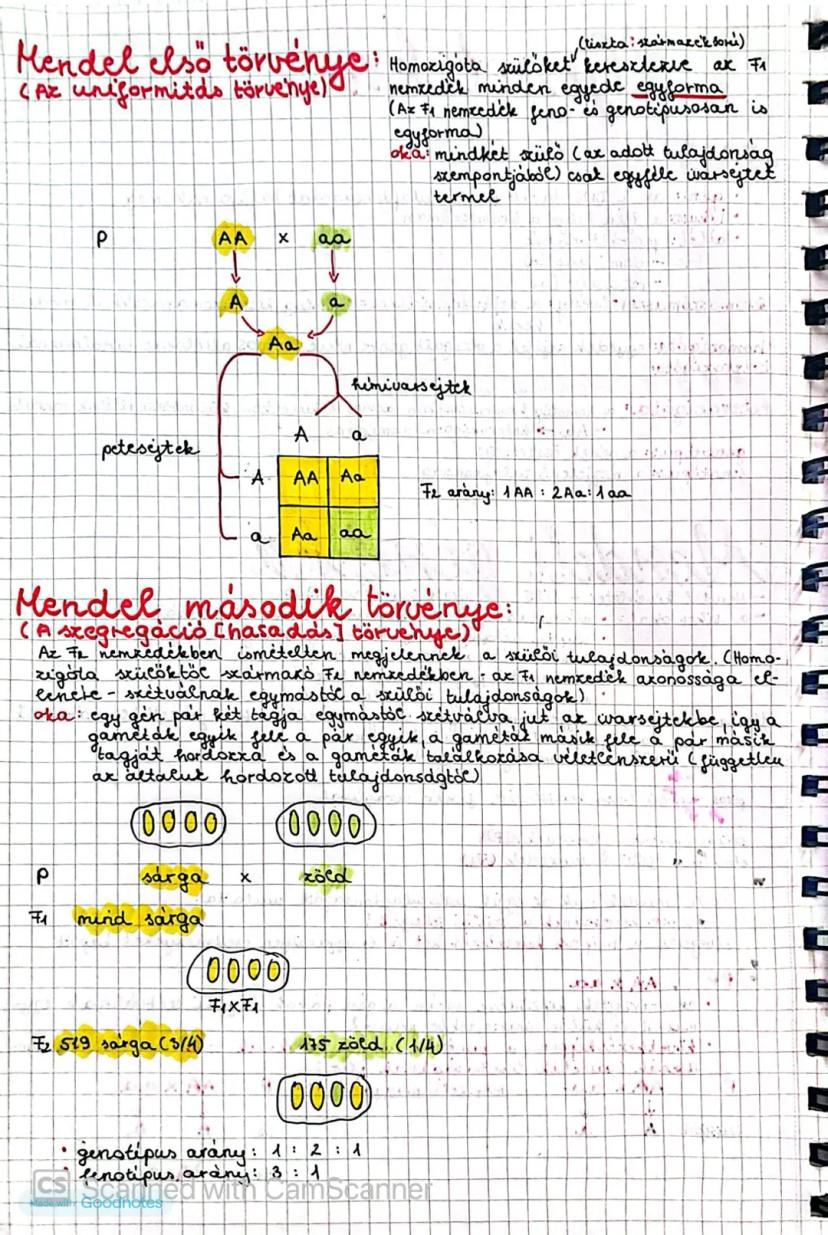 Mendel első törvénye:
(Az uniformitás törvénye)
(tiszta: származéksorú)
Homozigóta szülőket keresztezve az F1
nemzedék minden egyede egyforma
(Az F1 nemzedék feno- és genotípusosan is
egyforma)
oka: mindkét szülő (az adott tulajdonság
szempontjából) csak egyféle ivarsejtet
termel
P AA x aa
A a
Aa
hímivarsejtek
A a
petesejtek
A AA Aa
F2 arány: 1AA : 2Aa : 1aa
a Aa aa
Mendel második törvénye:
(A szegregáció [hasadás] törvénye)
Az F2 nemzedékben ismételten megjelennek a szülői tulajdonságok. (Homo-
zigóta szülőktől származó F2 nemzedékben - az F1 nemzedék azonossága el-
lenére - szétválnak egymástól a szülői tulajdonságok)
oka: egy gén pár két tagja egymástól szétválva jut az ivarsejtekbe, így a
gaméták egyik fele a pár egyik, a gaméták másik fele a pár másik
tagját hordozza és a gaméták találkozása véletlenszerű (független
az általuk hordozott tulajdonságtól)
P sárga x zöld
F1 mind sárga
F1xF1
F2 519 sárga (3/4) 175 zöld (1/4)
• genotípus arány: 1 : 2 : 1
• fenotípus arány: 3 : 1
CS Scanned with CamScanner
Made with Goodnotes